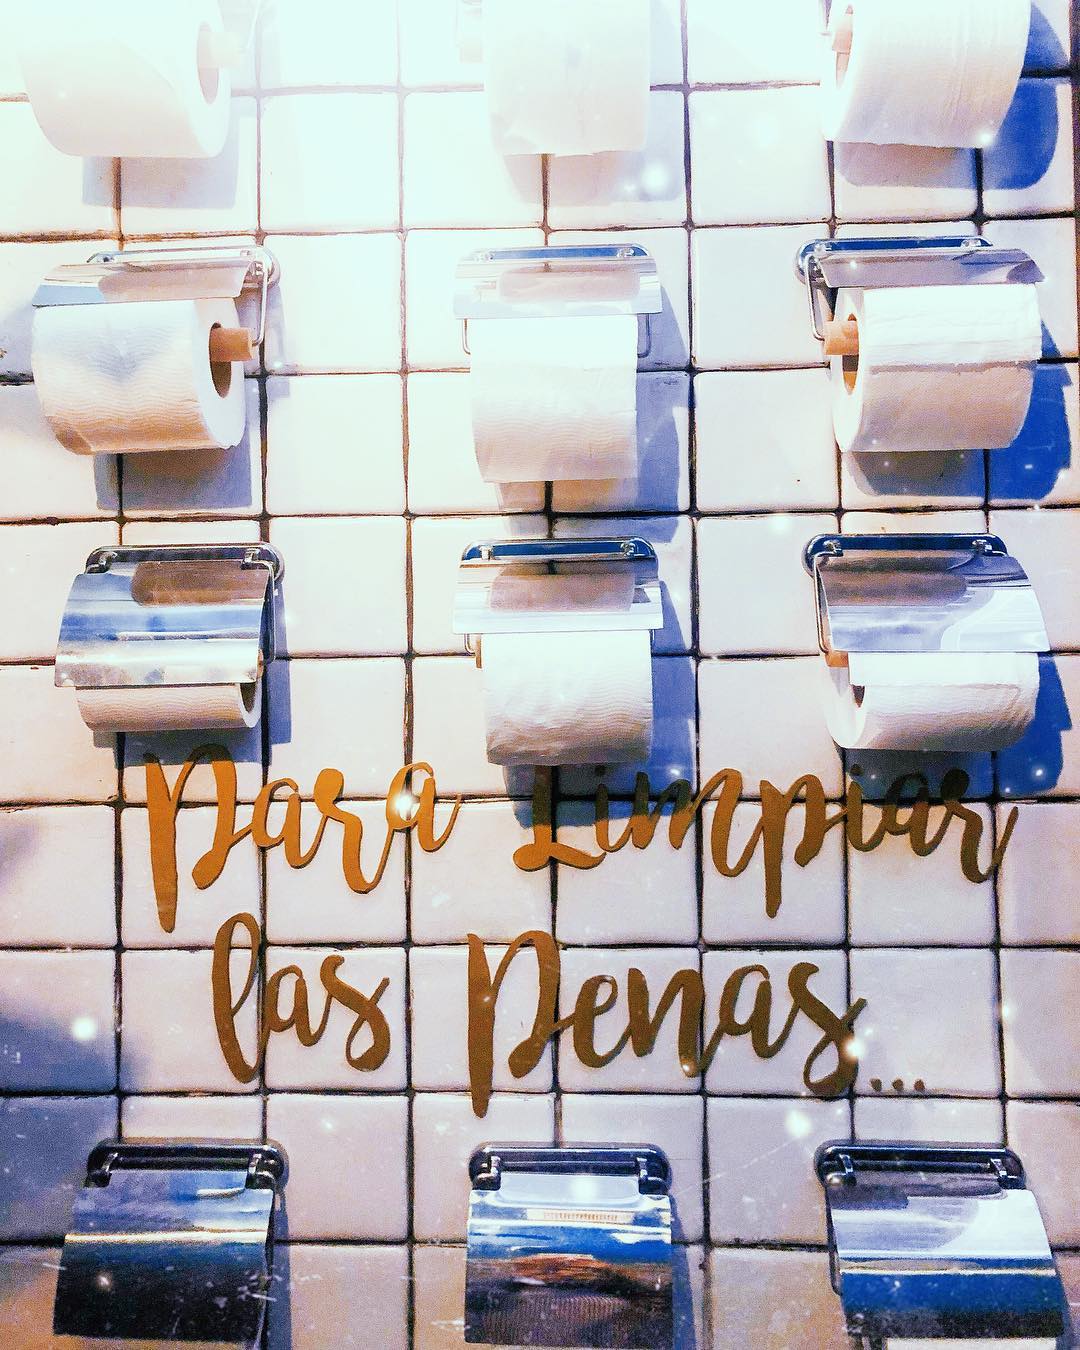 Para Limpiar
las Penas...